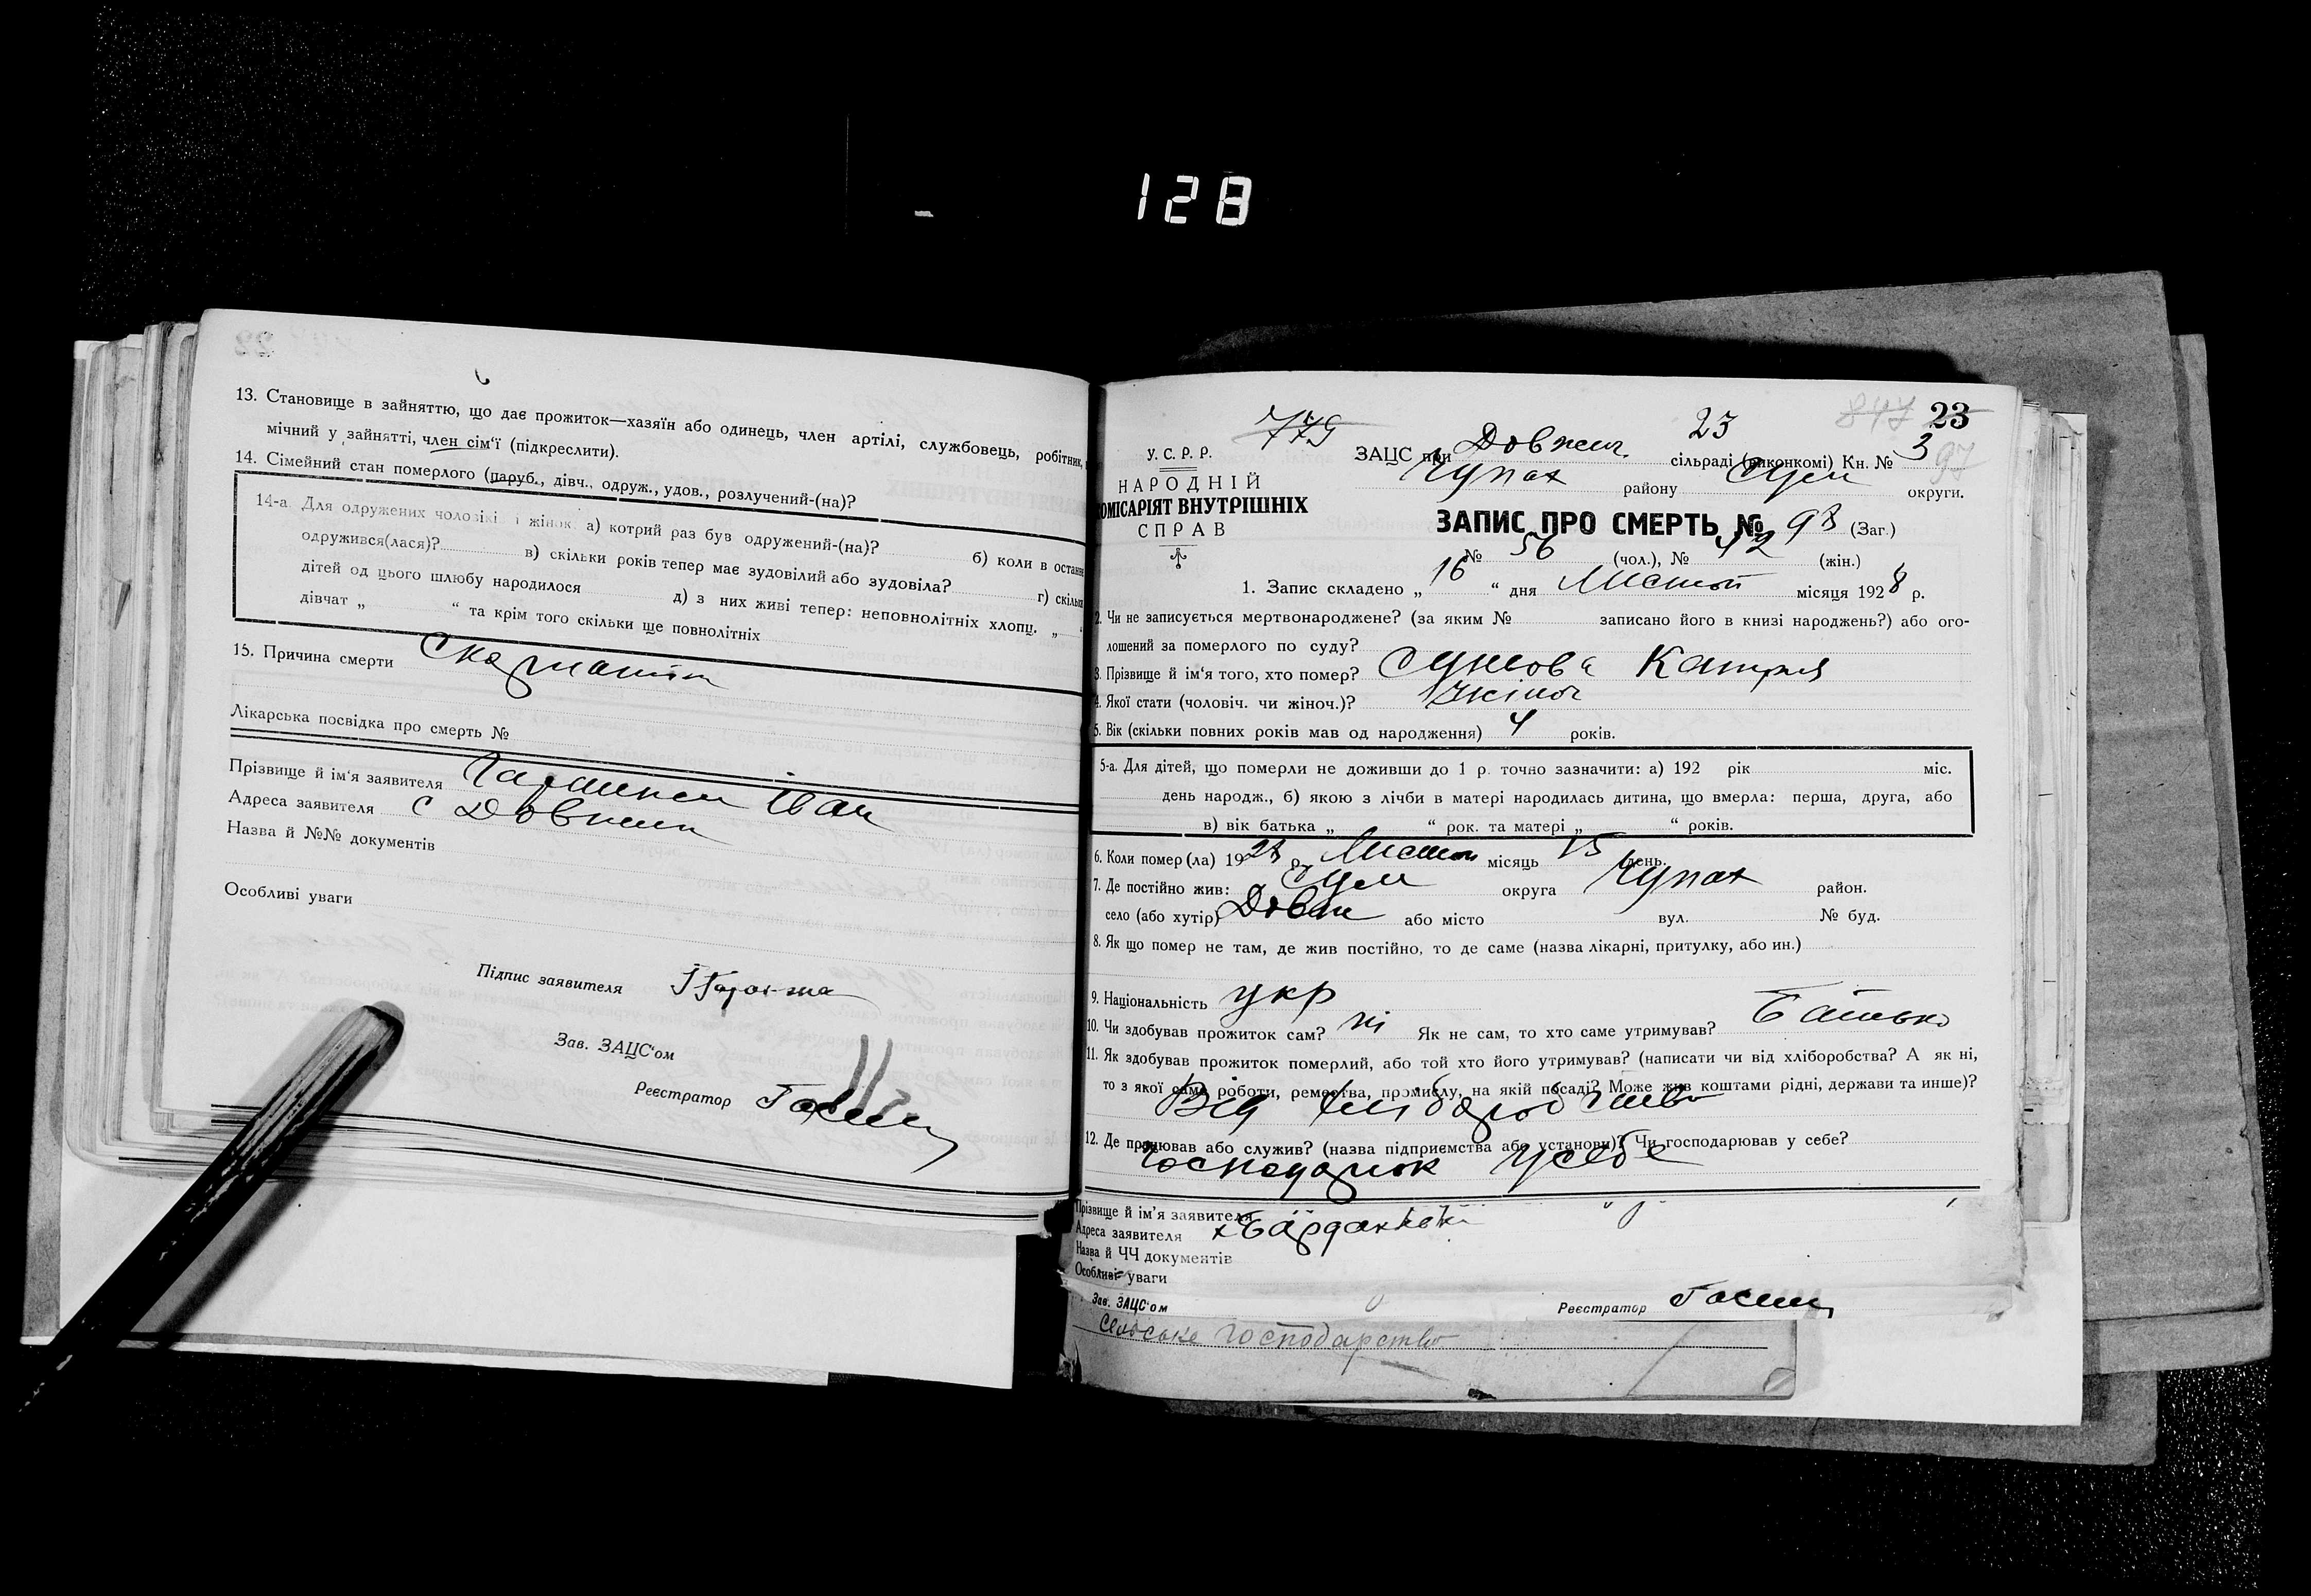 128
13. Становище в зайняттю, що дає прожиток—хазяїн або одинець, член артілі, службовець, робітник,
мічний у зайнятті, член сім'ї (підкреслити).
14. Сімейний стан померлого (паруб., дівч., одруж., удов., розлучений-(на)?
14-а. Для одружених чоловіків і жінок: а) котрий раз був одружений-(на)? б) коли в останн
одружився(лася)? в) скільки років тепер має зудовілий або зудовіла? г) скільк
дітей од цього шлюбу народилося д) з них живі тепер: неповнолітніх хлопц. „
дівчат „ “ та крім того скільки ще повнолітніх
15. Причина смерти Скарлатін
Лікарська посвідка про смерть №
Прізвище й ім'я заявителя Іван
Адреса заявителя с Довжик
Назва й №№ документів
Особливі уваги
Підпис заявителя
Зав. ЗАЦС'ом
Реєстратор
779 23 847 23
У. С. Р. Р. ЗАЦС при Довжич. сільраді (виконкомі) Кн. № 3 97
НАРОДНІЙ Чупах району Сум округи.
КОМІСАРІЯТ ВНУТРІШНІХ
СПРАВ
ЗАПИС ПРО СМЕРТЬ № 98 (Заг.)
№ 56 (чол.), № 42 (жін.)
1. Запис складено „ 16 “ дня Листоп місяця 1928 р.
2. Чи не записується мертвонароджене? (за яким № записано його в книзі народжень?) або ого-
лошений за померлого по суду?
3. Прізвище й ім'я того, хто помер? Катря
4. Якої стати (чоловіч. чи жіноч.)? Жіноч
5. Вік (скільки повних років мав од народження) 4 років.
5-а. Для дітей, що померли не доживши до 1 р. точно зазначити: а) 192 рік міс.
день народж., б) якою з лічби в матері народилась дитина, що вмерла: перша, друга, або
в) вік батька „ “ рок. та матері „ “ років.
6. Коли помер(ла) 1928 р. Листоп місяць 15 день.
7. Де постійно жив: Сум округа Чупах район.
село (або хутір) Довж або місто вул. № буд.
8. Як що помер не там, де жив постійно, то де саме (назва лікарні, притулку, або ин.)
9. Національність укр
10. Чи здобував прожиток сам? ні Як не сам, то хто саме утримував? Батько
11. Як здобував прожиток померлий, або той хто його утримував? (написати чи від хліборобства? А як ні,
то з якої саме роботи, ремества, промислу, на якій посаді? Може жив коштами рідні, держави та инше)?
Від хліборобства
12. Де працював або служив? (назва підприємства або установи)? Чи господарював у себе?
Господарюв усебе
Прізвище й ім'я заявителя
Адреса заявителя
Назва й ЧЧ документів
Особливі уваги
Зав. ЗАЦС'ом Реєстратор
сельське господарство